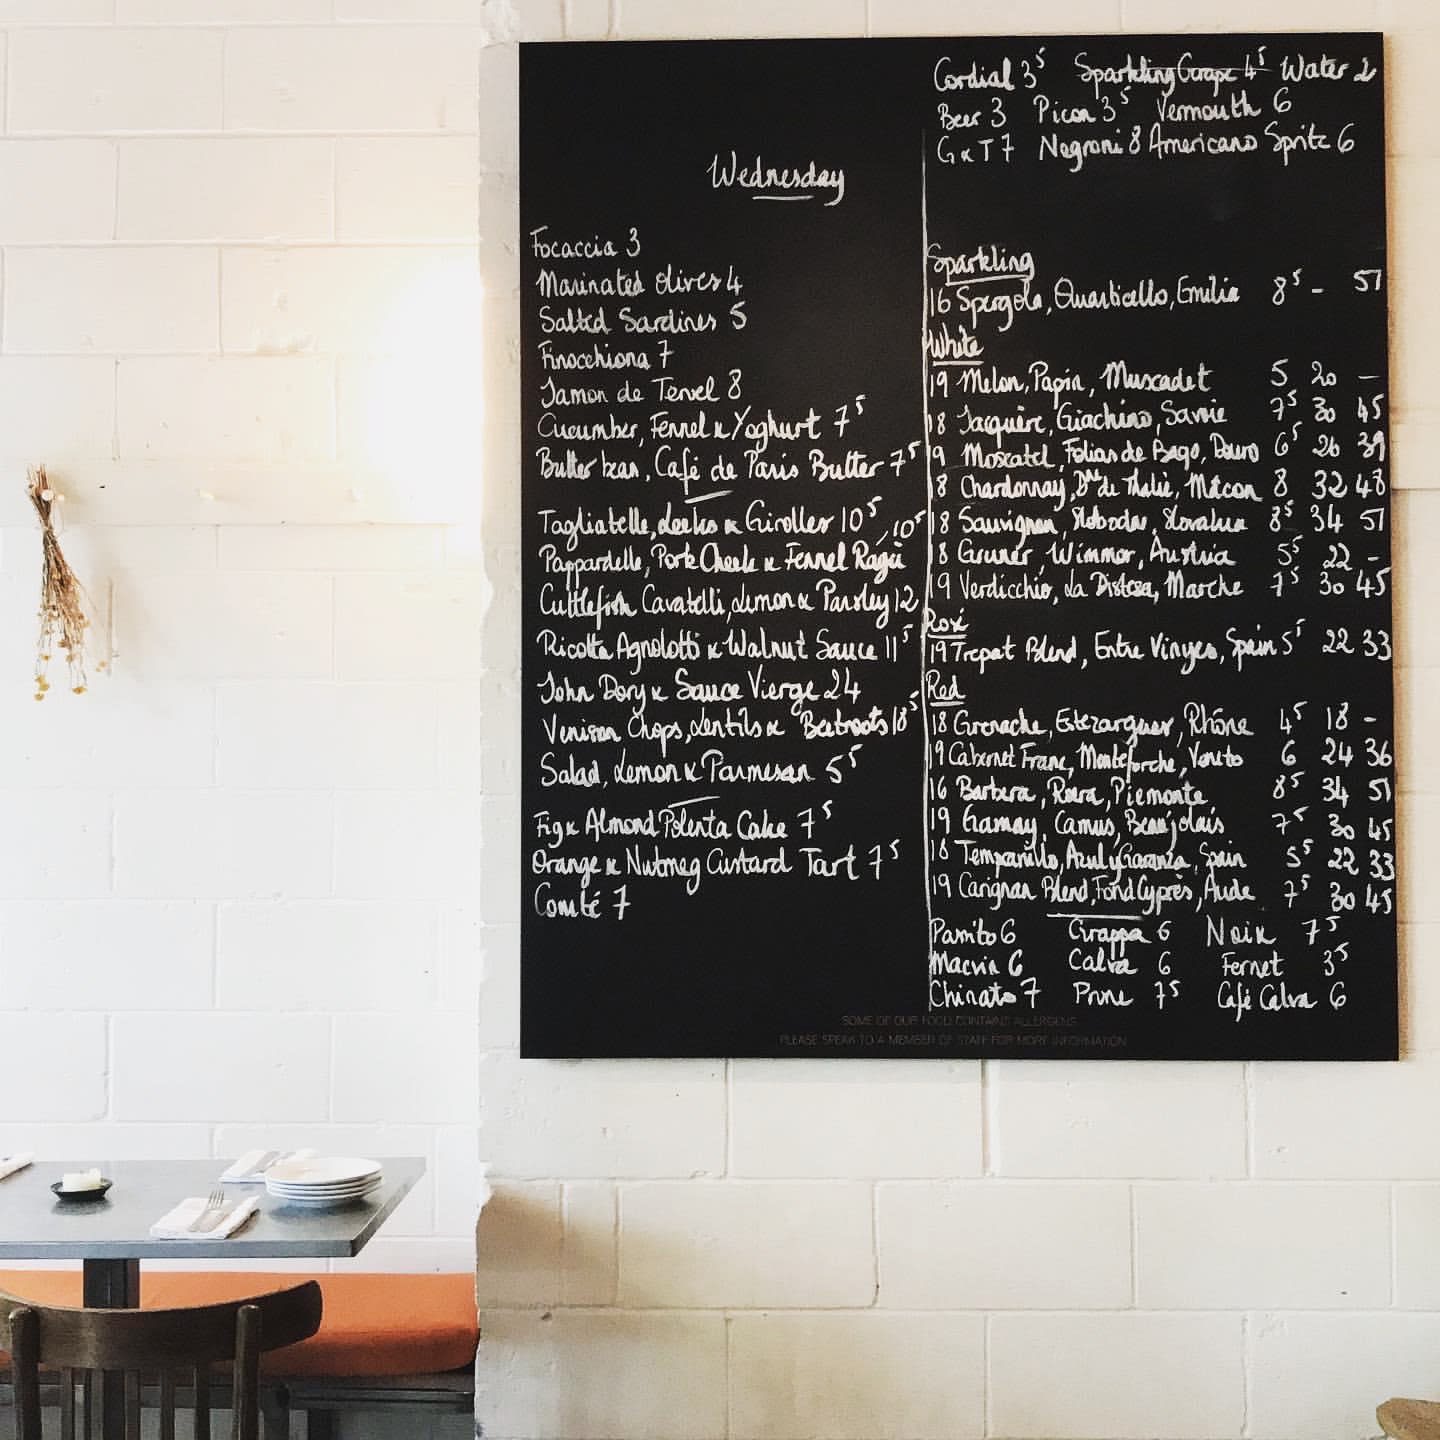 Wednesday
Focaccia 3
Marinated Olives 4
Salted Sardines 5
Finocchiona 7
Jamon de Teruel 8
Cucumber, Fennel x Yoghurt 7⁵
Butter bean, Café de Paris Butter 7⁵
Tagliatelle, Leeks x Girolles 10⁵
Pappardelle, Pork Cheek x Fennel Ragù 10⁵
Cuttlefish Cavatelli, Lemon x Parsley 12
Ricotta Agnolotti x Walnut Sauce 11⁵
John Dory x Sauce Vierge 24
Venison Chops, Lentils x Beetroots 18⁵
Salad, Lemon x Parmesan 5⁵
Fig x Almond Polenta Cake 7⁵
Orange x Nutmeg Custard Tart 7⁵
Comté 7
Cordial 3⁵ Sparkling Grape 4⁵ Water 2
Beer 3 Picon 3⁵ Vermouth 6
G x T 7 Negroni 8 Americano Spritz 6
Sparkling
16 Spergola, Quarticello, Emilia 8⁵ - 51
White
19 Melon, Papin, Muscadet 5 20 -
18 Jacquère, Giachino, Savoie 7⁵ 30 45
19 Moscatel, Folias de Bago, Douro 6⁵ 26 39
18 Chardonnay, Dne de Thalie, Mâcon 8 32 48
18 Sauvignon, Slobodne, Slovakia 8⁵ 34 51
18 Gruner, Wimmer, Austria 5⁵ 22 -
19 Verdicchio, La Distesa, Marche 7⁵ 30 45
Rosé
19 Trepat Blend, Entre Vinyes, Spain 5⁵ 22 33
Red
18 Grenache, Estezargues, Rhône 4⁵ 18 -
19 Cabernet Franc, Monteforche, Veneto 6 24 36
16 Barbera, Roera, Piemonte 8⁵ 34 51
19 Gamay, Camus, Beaujolais 7⁵ 30 45
18 Tempranillo, Azul y Garanza, Spain 5⁵ 22 33
19 Carignan Blend, Fond Cyprès, Aude 7⁵ 30 45
Passito 6 Grappa 6 Noix 7⁵
Macvin 6 Calva 6 Fernet 3⁵
Chinato 7 Prune 7⁵ Café Calva 6
SOME OF OUR FOOD CONTAINS ALLERGENS
PLEASE SPEAK TO A MEMBER OF STAFF FOR MORE INFORMATION